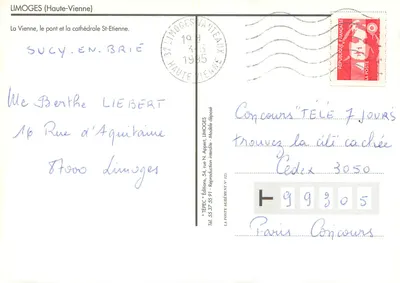 LIMOGES (Haute-Vienne)
La Vienne, le pont et la cathédrale St-Etienne.
SUCY.EN.BRIE
Me Berthe LIEBERT
16 Rue d'Aquitaine
87000 Limoges
87 LIMOGES
19H
1995
HAUTE VIENNE
"TEPEC" Éditions, 54, rue N. Appert, LIMOGES
Tél. 55.37.55.91 - Reproduction interdite - Modèle déposé
Concours "TÉLÉ 7 JOURS
trouvez la cité cachée
Cédex 3050
99305
Paris Concours